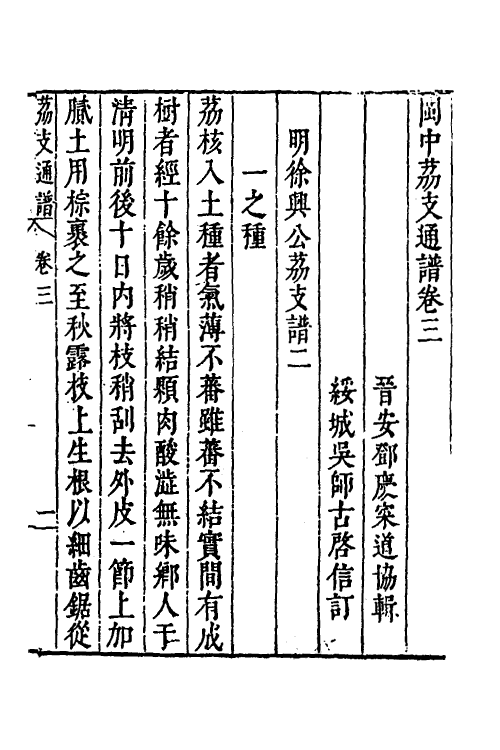 閩中荔支通譜卷三
晉安鄧慶寀道協輯
綏城吳師古啓信訂
明徐興公荔支譜二
一之種
荔核入土種者氣薄不蕃雖蕃不結實間有成
樹者經十餘歲稍稍結顆肉酸澁無味鄉人于
清明前後十日内將枝稍刮去外皮一節上加
膩土用棕裹之至秋露枝上生根以細齒鋸從
荔支通譜 卷三 二